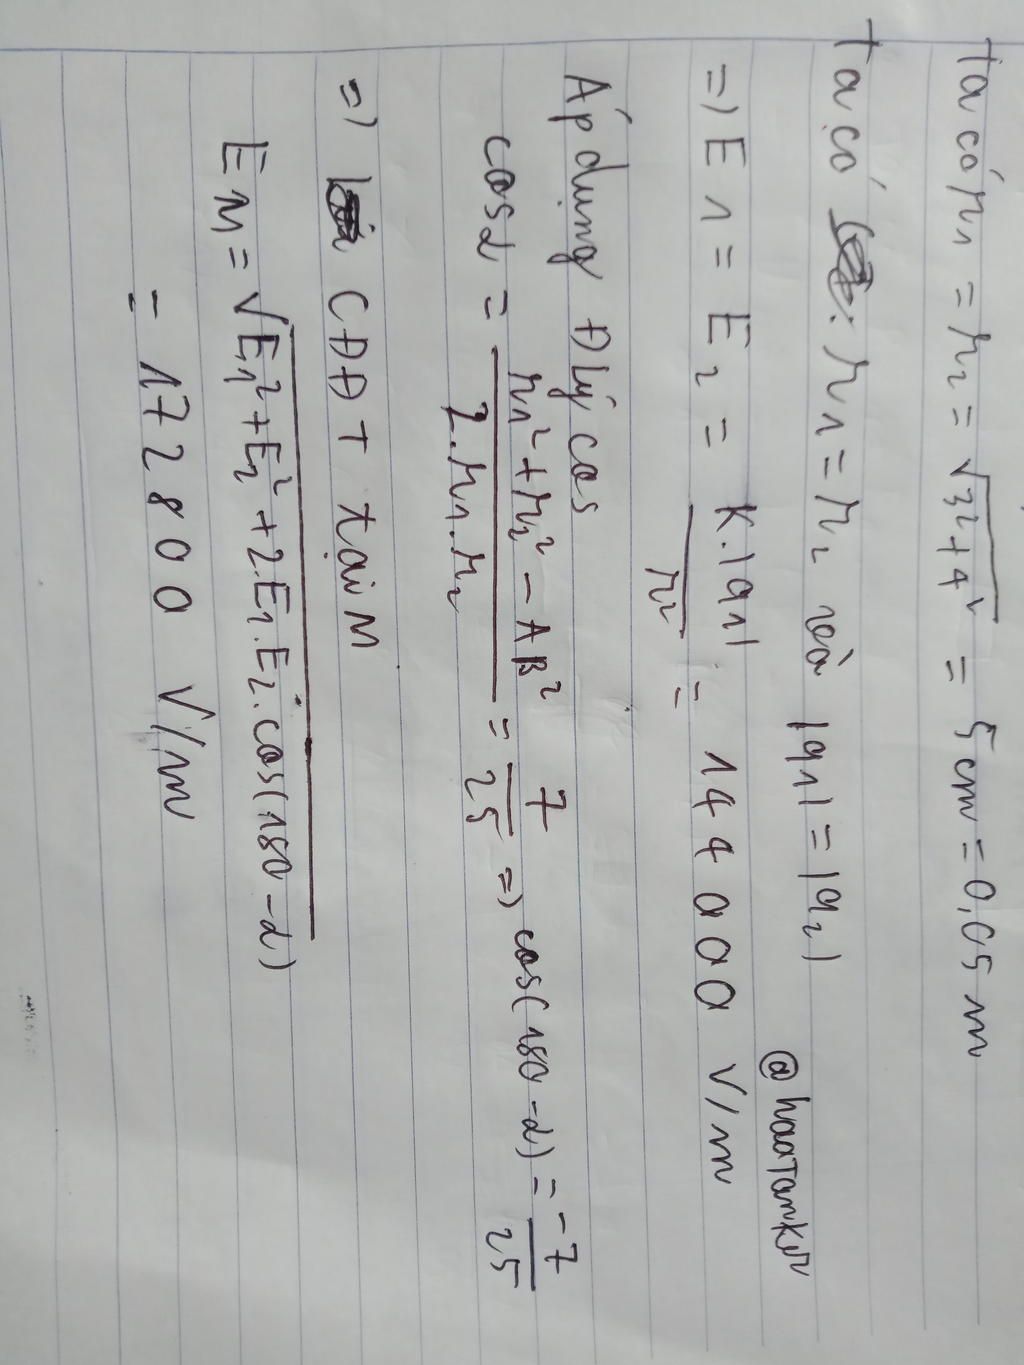 Ta có r₁ = r₂ = √3²+4² = 5cm = 0,05 m
Ta có : r₁ = r₂ và |q₁| = |q₂|
@haaTanker
=) E₁ = E₂ = K.|q₁| / r² = 144000 V/m
Áp dụng Đlý cos
cosα = r₁²+r₂² - AB² / 2.r₁.r₂ = 7/25 =) cos(180-α) = -7/25
=) CĐĐT tại M
E M = √E₁²+E₂²+2.E₁.E₂.cos(180-α)
= 172800 V/m